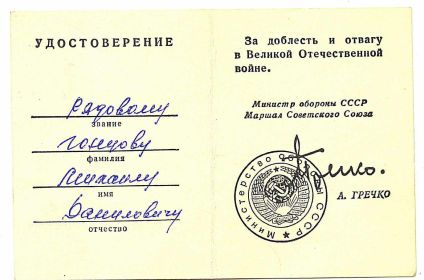 УДОСТОВЕРЕНИЕ
Рядовому
звание
Гонцову
фамилия
Михаилу
имя
Даниловичу
отчество
За доблесть и отвагу
в Великой Отечественной
войне.
Министр обороны СССР
Маршал Советского Союза
Министерство обороны СССР
А. ГРЕЧКО